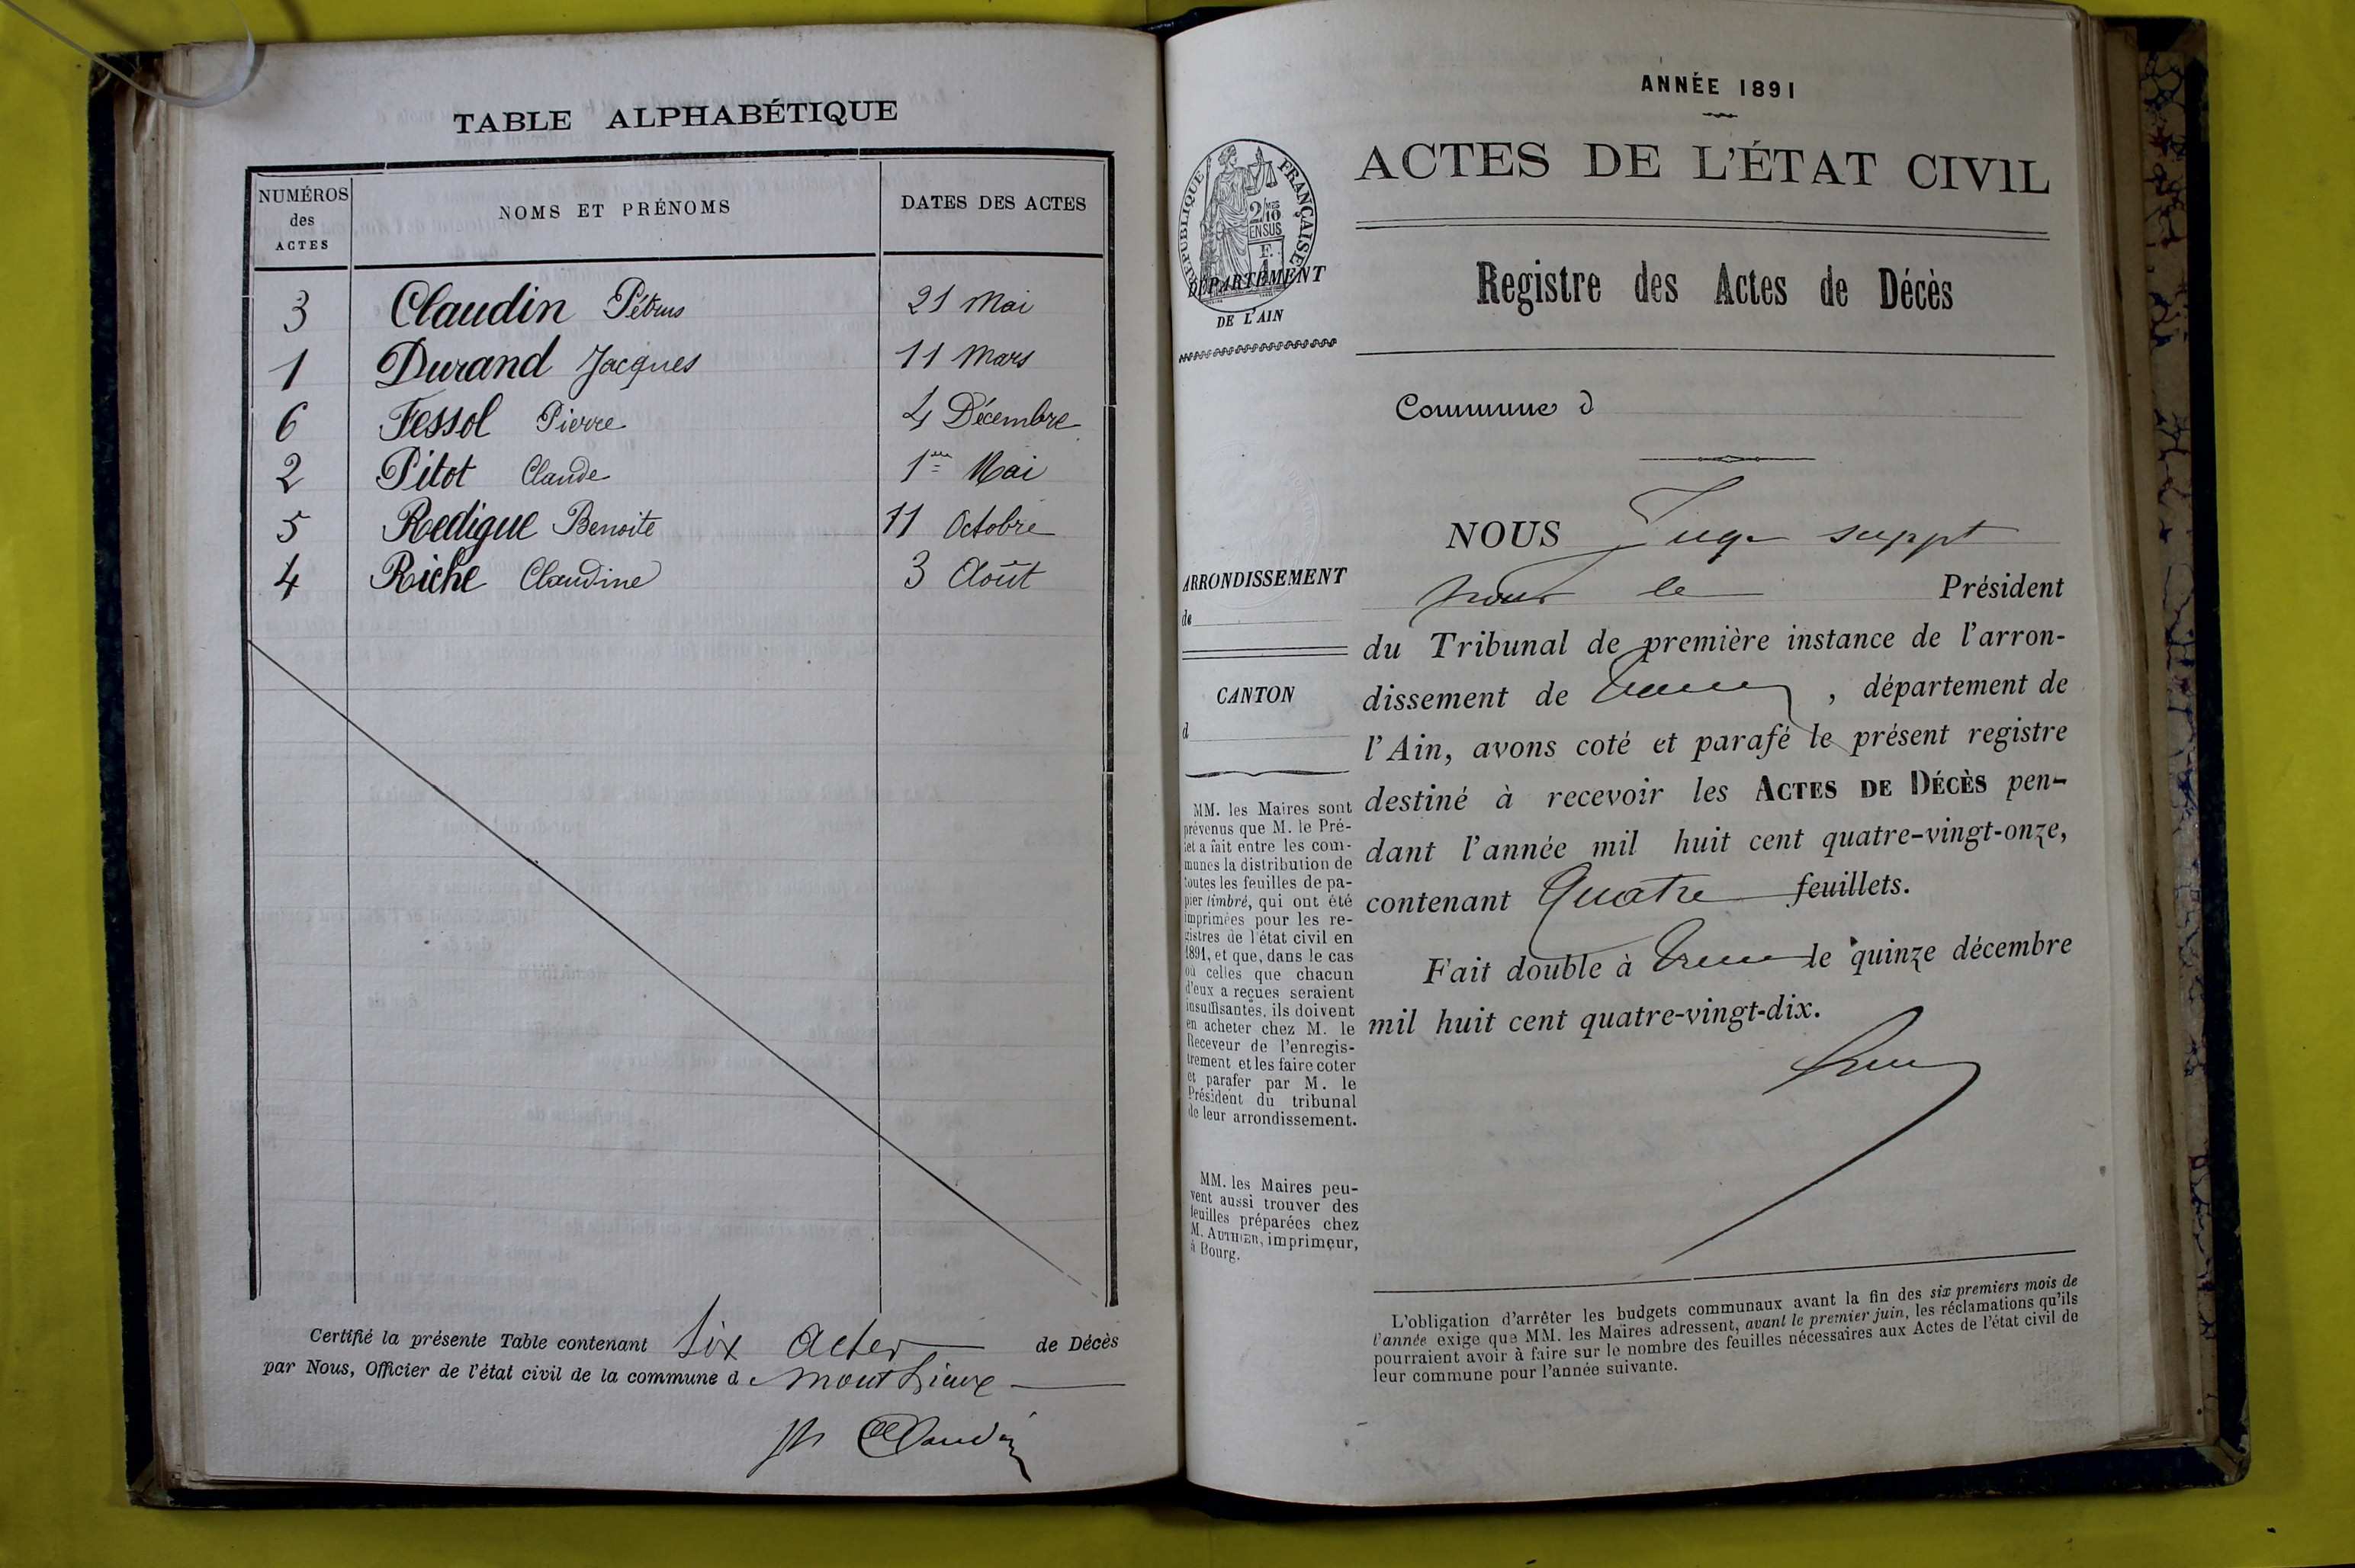 TABLE ALPHABÉTIQUE
NUMÉROS des ACTES NOMS ET PRÉNOMS DATES DES ACTES
3 Claudin Pétrus 21 Mai
1 Durand Jacques 11 Mars
6 Fessol Pierre 4 Décembre
2 Pitot Claude 1er Mai
5 Redigue Benoite 11 Octobre
4 Riche Claudine 3 Août
Certifié la présente Table contenant Six Actes de Décès
par Nous, Officier de l'état civil de la commune d Monthieux
Claudin
ANNÉE 1891
ACTES DE L'ÉTAT CIVIL
RÉPUBLIQUE FRANÇAISE
2/10 EN SUS
DÉPARTEMENT
DE L'AIN
Registre des Actes de Décès
Commune d
ARRONDISSEMENT
de
CANTON
d
MM. les Maires sont
prévenus que M. le Pré-
fet a fait entre les com-
munes la distribution de
toutes les feuilles de pa-
pier timbré, qui ont été
imprimées pour les re-
gistres de l'état civil en
1891, et que, dans le cas
où celles que chacun
d'eux a reçues seraient
insuffisantes, ils doivent
en acheter chez M. le
Receveur de l'enregis-
trement et les faire coter
et parafer par M. le
Président du tribunal
de leur arrondissement.
MM. les Maires peu-
vent aussi trouver des
feuilles préparées chez
M. AUTHIER, imprimeur,
à Bourg.
NOUS Juge suppt
pour le Président
du Tribunal de première instance de l'arron-
dissement de , département de
l'Ain, avons coté et parafé le présent registre
destiné à recevoir les ACTES DE DÉCÈS pen-
dant l'année mil huit cent quatre-vingt-onze,
contenant Quatre feuillets.
Fait double à le quinze décembre
mil huit cent quatre-vingt-dix.
L'obligation d'arrêter les budgets communaux avant la fin des six premiers mois de
l'année exige que MM. les Maires adressent, avant le premier juin, les réclamations qu'ils
pourraient avoir à faire sur le nombre des feuilles nécessaires aux Actes de l'état civil de
leur commune pour l'année suivante.